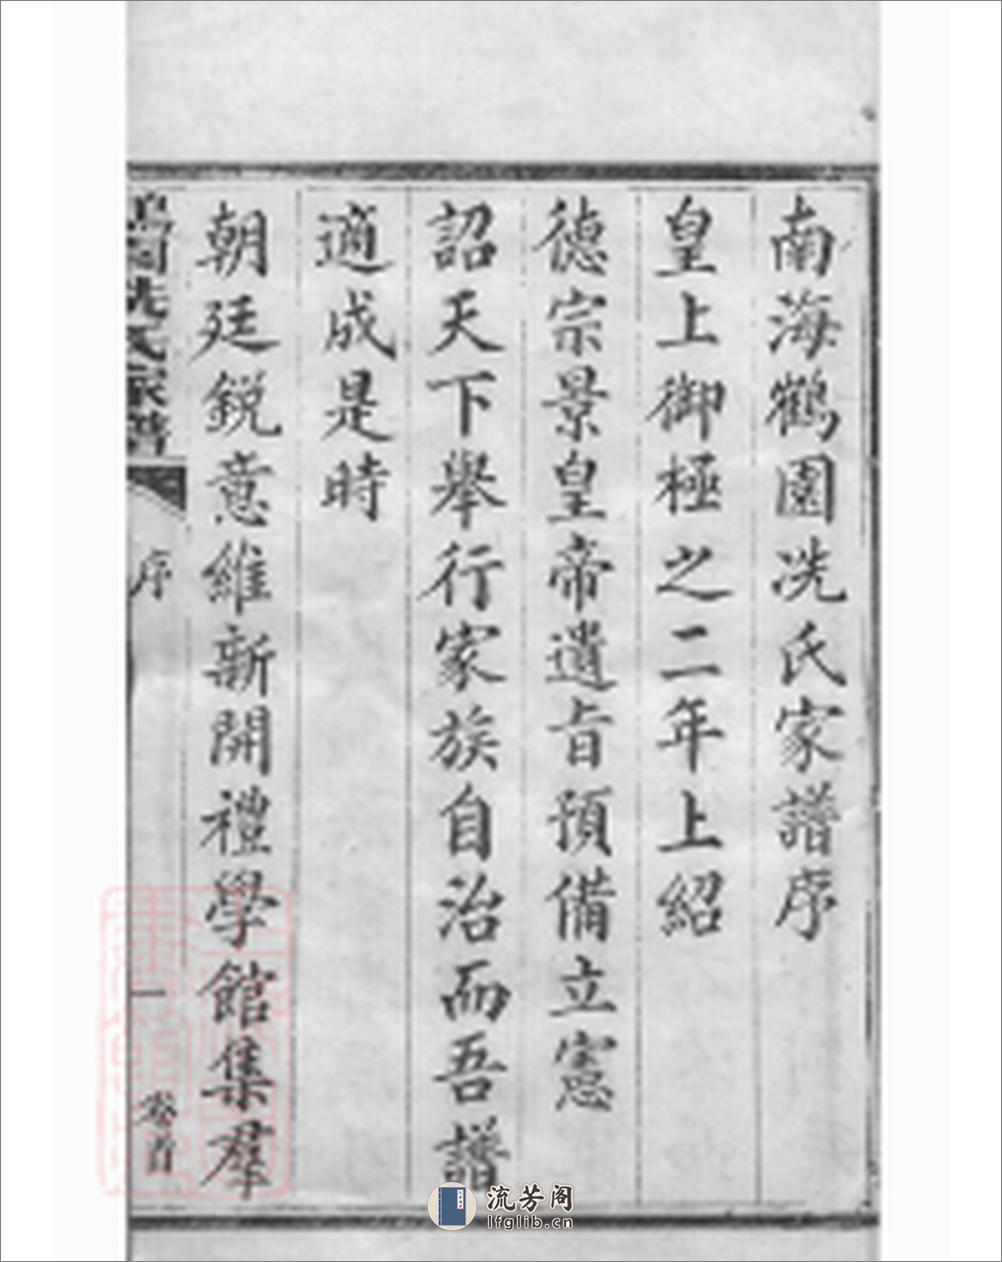 南海鶴園冼氏家譜序
皇上御極之二年上紹
德宗景皇帝遺旨預備立憲
詔天下舉行家族自治而吾譜
適成是時
朝廷銳意維新開禮學館集羣
鶴園冼氏家譜
序
一
卷首
流芳阁
lfglib.cn